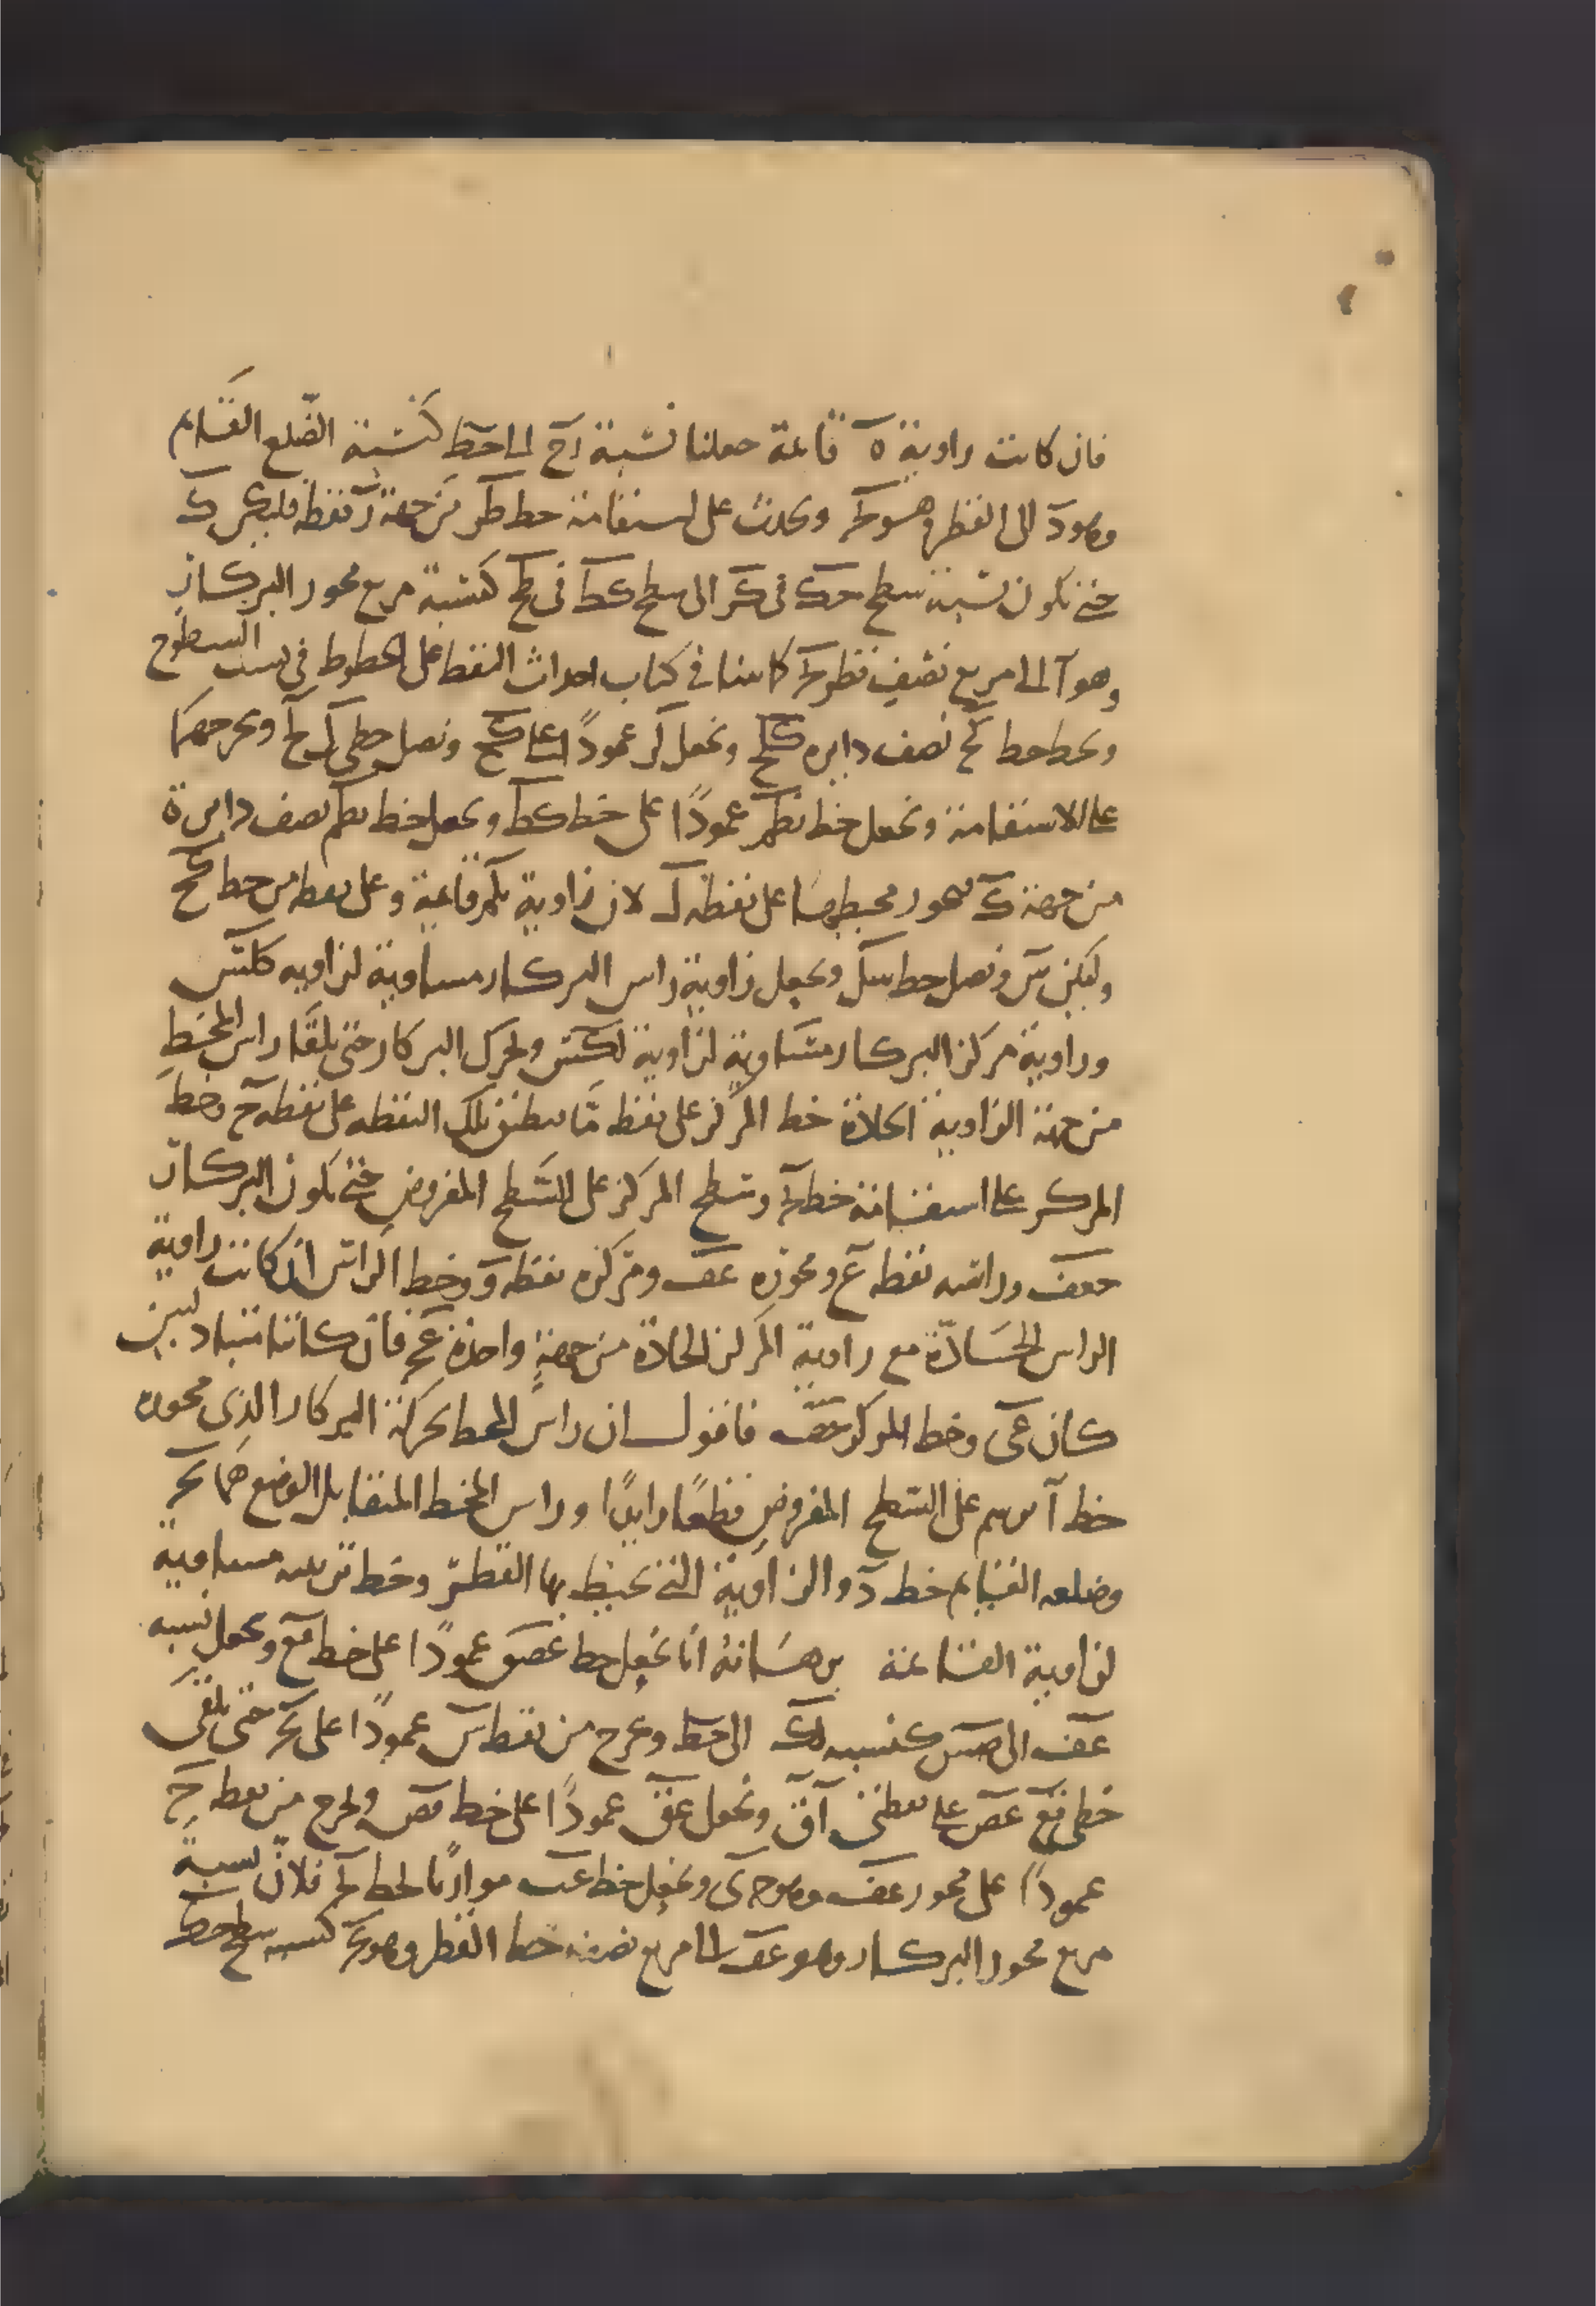 فان كانت زاوية ه قائمة جعلنا نسبة رح الى حط كنسبة الضلع القايم
وهو د الى القطر وهو حر ونحدث على استقامة خط طر من جهة ر نقطة فليكن ك
حتى تكون نسبة سطح حك في كر الى سطح كط في طح كنسبة مربع محور البركار
وهو آ الى مربع نصف قطر حر كما بينا في كتاب احداث النقط على الخطوط في نسب السطوح
ونخط خط كح نصف دايره كلح ونجعل لر عمودًا على كح ونصل خطى كل لح ونخرجهما
على الاستقامة ونجعل خط نطم عمودًا على خط كط ونجعل خط نطم نصف دايرة
من جهة ك فهو محيطها على نقطة ل لان زاوية نلم قائمة وعلى نقطه من خط كح
وليكن س ونصل خط سل ونجعل زاوية راس البركار مساوية لزاويه كلس
وزاوية مركز البركار مساوية لزاوية لكس ونحرك البركار حتى يلقا راس المخط
من جهة الزاوية الحادة خط المركز على نقطه ما ينطبق تلك النقطه على نقطه ح وخط
المركز على استقامة خط حر وسطح المركز على السطح المفروض حتى تكون البركار
حعف وراسه نقطه ع ومحوره عف ومركزه نقطه ف وخط الراس ان كانت زاوية
الراس الحادة مع زاوية المركز الحادة من جهةٍ واحدة عح فان كانتا متبادلتين
كان عى وخط المركز حف فاقول ان راس المخط بحركة البركار الذى محوره
خط آ يرسم على السطح المفروض قطعًا زايدًا وراس المخط المتقابل الوضع
وضلعه القايم خط د والزاوية التى يحيط بها القطر وخط ترتيبه مساوية
لزاوية القائمة برهانه انا نجعل خط عصق عمودًا على خط فع ونجعل نسبه
عف الى صس كنسبه لك الى حط ونخرج من نقطة س عمودًا على حر حتى يلقى
خطى فع عص على نقطتى آق ونجعل عق عمودًا على خط فص ونخرج من نقطه ح
عمودًا على محور عف وهو حى ونجعل خط عت موازيًا لخط حر فلان نسبة
مربع محور البركار وهو عف الى مربع نصف خط القطر وهو حر كنسبه سطح حك